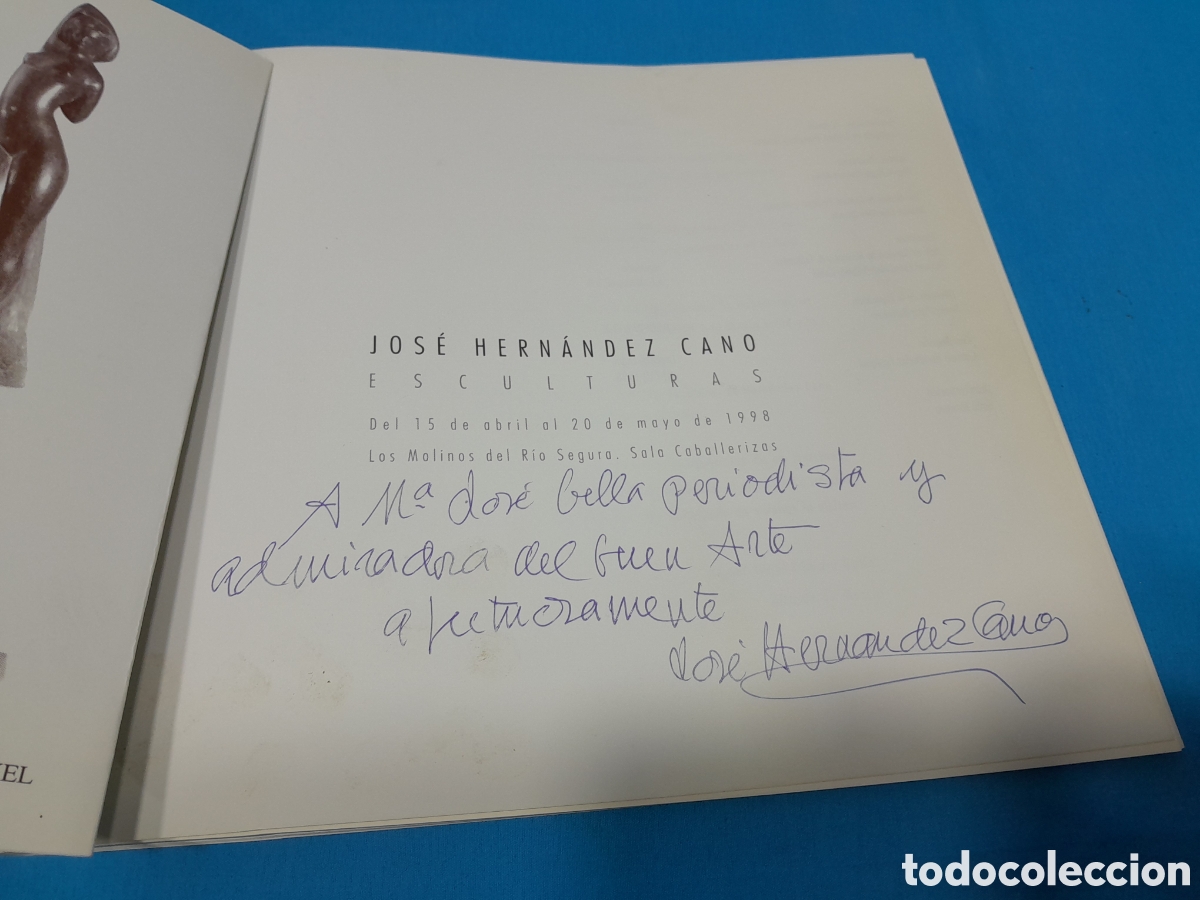 JOSÉ HERNÁNDEZ CANO
ESCULTURAS
Del 15 de abril al 20 de mayo de 1998
Los Molinos del Río Segura. Sala Caballerizas
A Mª José bella periodista y
admiradora del buen Arte
afectuosamente
José Hernandez Cano
todocoleccion